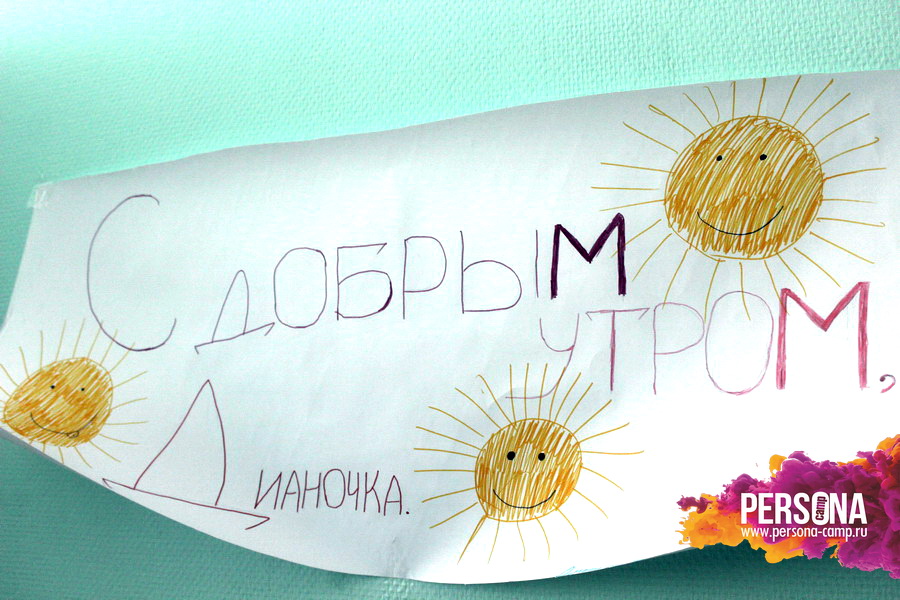 С ДОБРЫМ
УТРОМ,
ДИАНОЧКА.
PERSONA
camp
www.persona-camp.ru